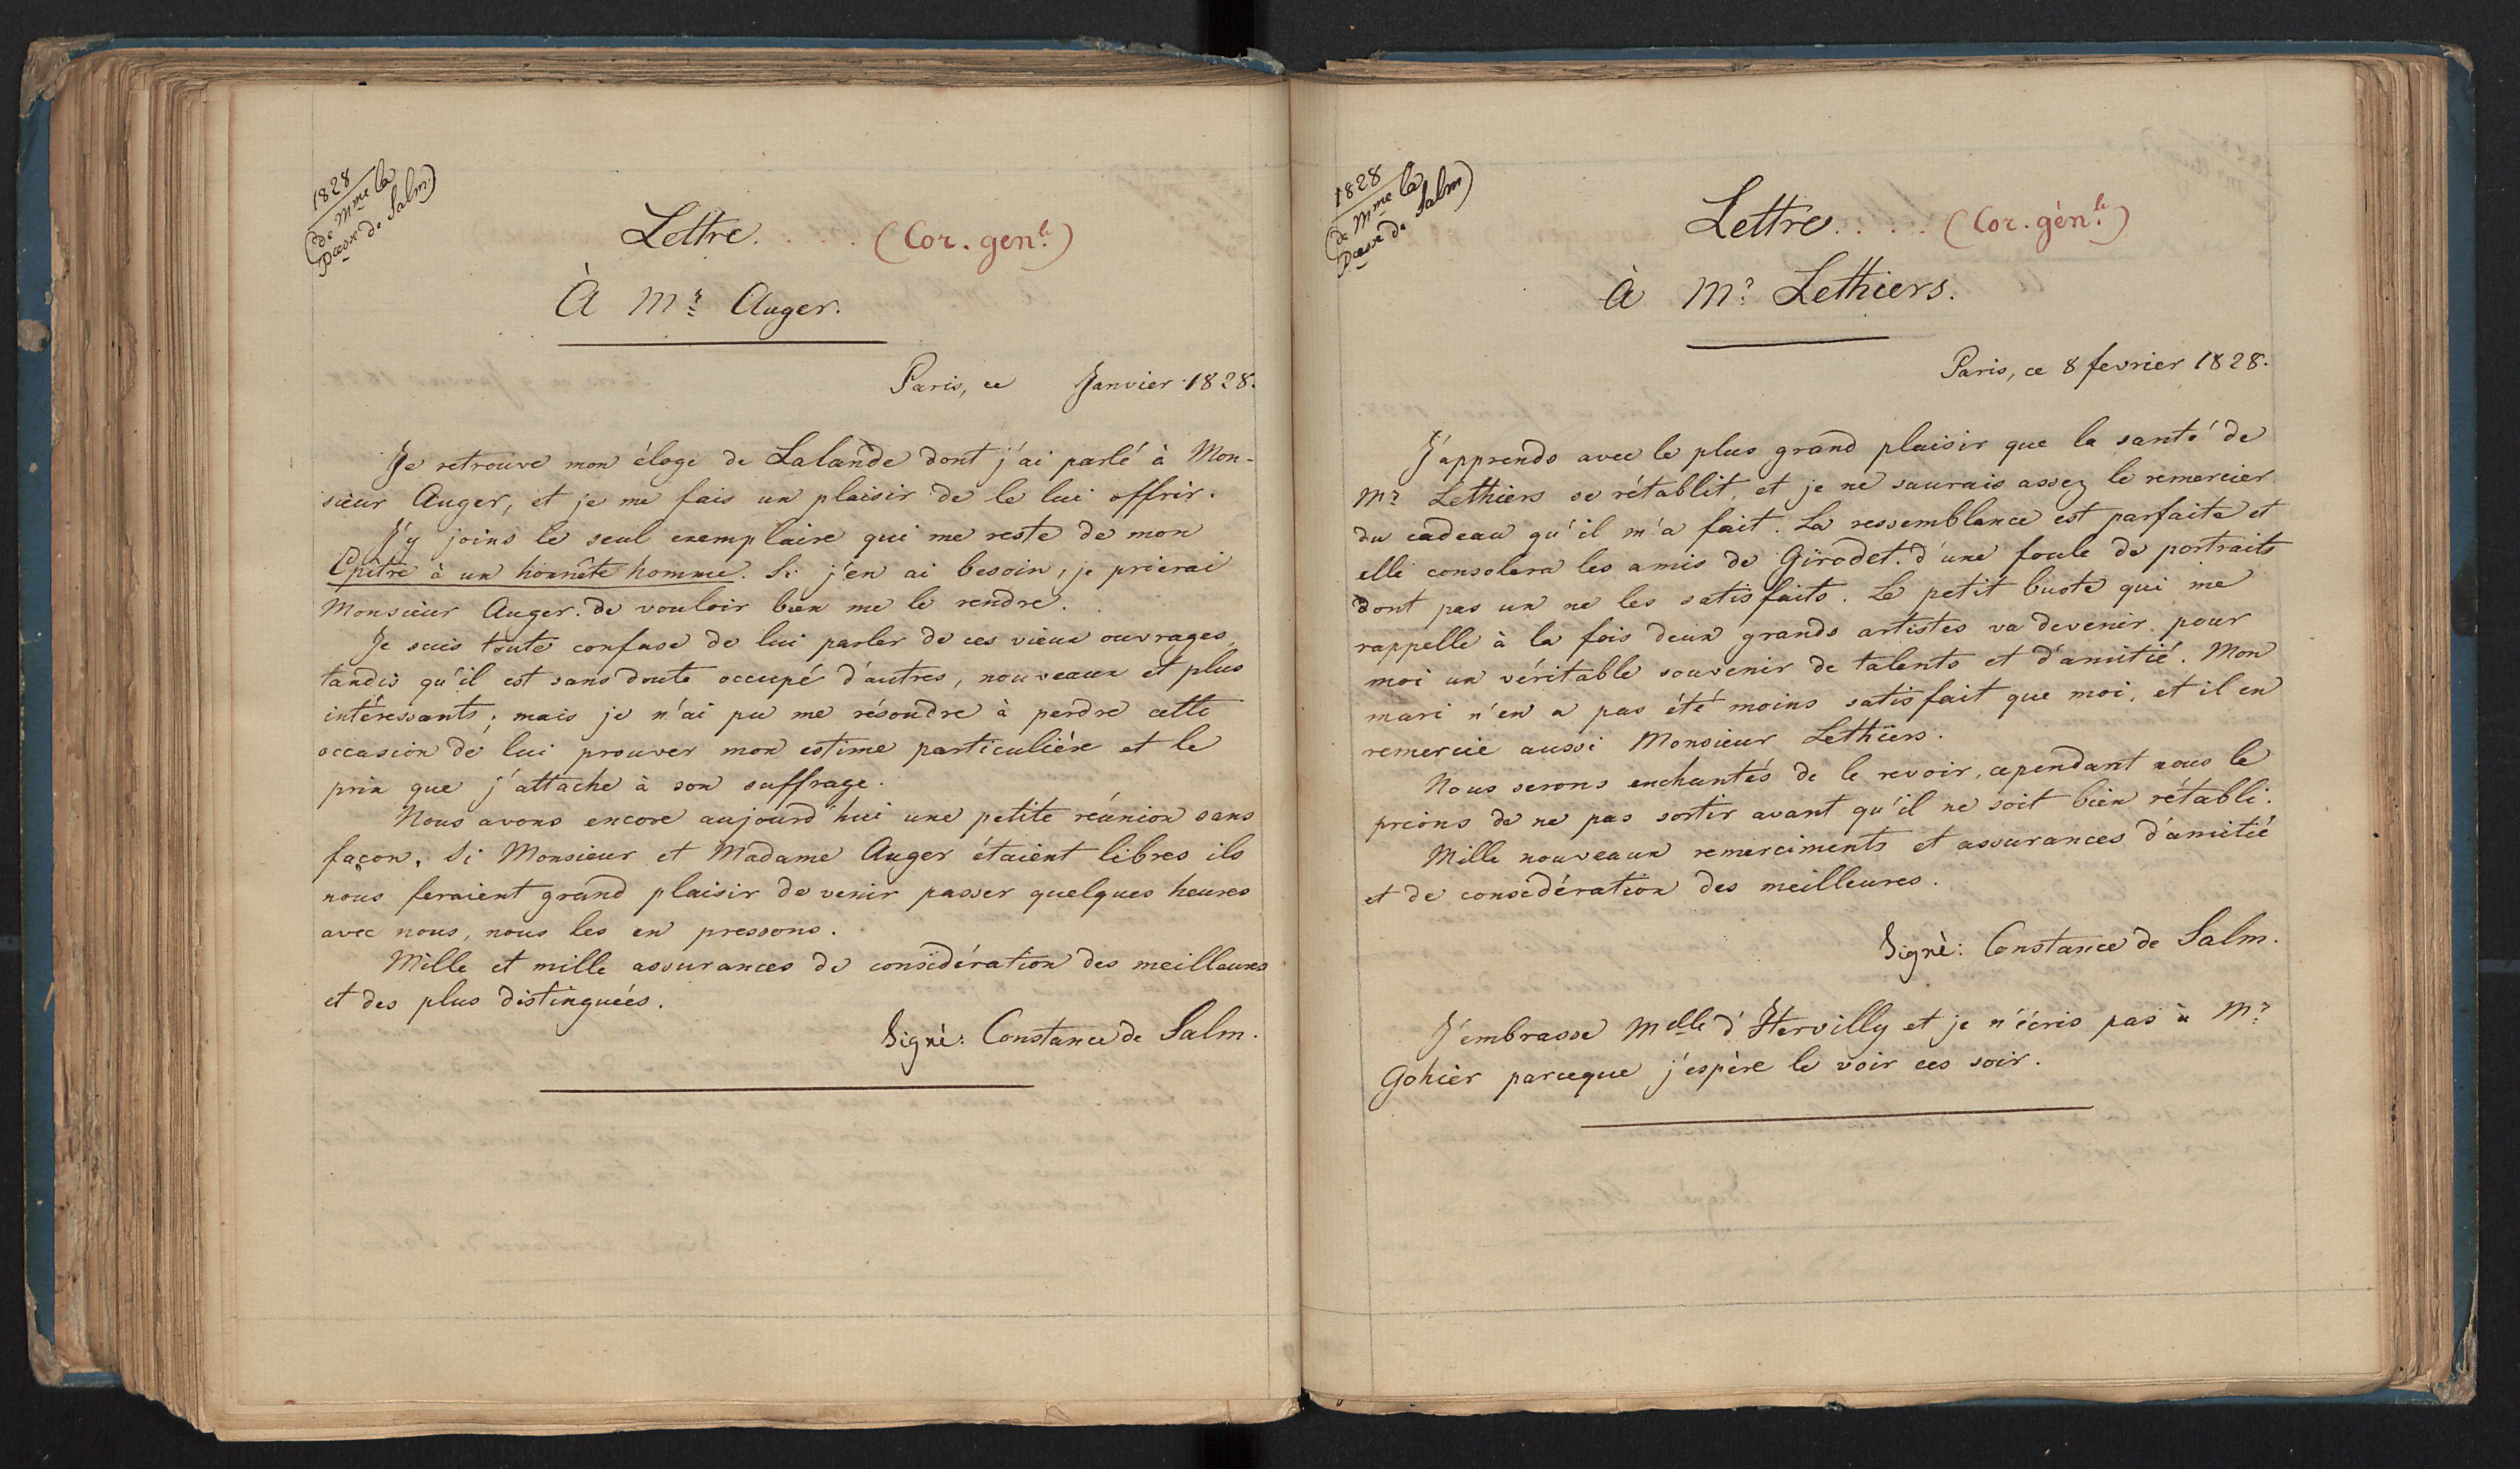 1828
(de Mme la
Pcesse de Salm.)
Lettre. . . . (Cor. génle.)
À Mr. Auger.
Paris, ce Janvier 1828.
Je retrouve mon éloge de Lalande dont j'ai parlé à Mon-
sieur Auger, et je me fais un plaisir de le lui offrir.
J'y joins le seul exemplaire qui me reste de mon
Epitre à un honnête homme. Si j'en ai besoin, je prierai
Monsieur Auger. de vouloir bien me le rendre.
Je suis toute confuse de lui parler de ces vieux ouvrages,
tandis qu'il est sans doute occupé d'autres, nouveaux et plus
intéressants; mais je n'ai pu me résoudre à perdre cette
occasion de lui prouver mon estime particulière et le
prix que j'attache à son suffrage.
Nous avons encore aujourd'hui une petite réunion sans
façon, Si Monsieur et Madame Auger étaient libres ils
nous feraient grand plaisir de venir passer quelques heures
avec nous, nous les en pressons.
Mille et mille assurances de considération des meilleures
et des plus distinguées.
Signé: Constance de Salm.
1828
(de Mme la
Pcesse de Salm)
Lettre. . . . (Cor. génle.)
à Mr. Lethiers.
Paris, ce 8 fevrier 1828.
J'apprends avec le plus grand plaisir que la santé de
Mr. Lethiers se rétablit, et je ne saurais assez le remercier
du cadeau qu'il m'a fait. La ressemblance est parfaite et
elle consolera les amis de Girodet. d'une foule de portraits
dont pas un ne les satisfaits. Le petit buste qui me
rappelle à la fois deux grands artistes va devenir pour
moi un véritable souvenir de talents et d'amitié. Mon
mari n'en a pas été moins satisfait que moi, et il en
remercie aussi Monsieur Lethiers.
Nous serons enchantés de le revoir, cependant nous le
prions de ne pas sortir avant qu'il ne soit bien rétabli.
Mille nouveaux remerciments et assurances d'amitié
et de considération des meilleures.
Signé: Constance de Salm.
J'embrasse Melle d'Hervilly et je n'écris pas à Mr.
Gohier parceque j'espère le voir ces soir.